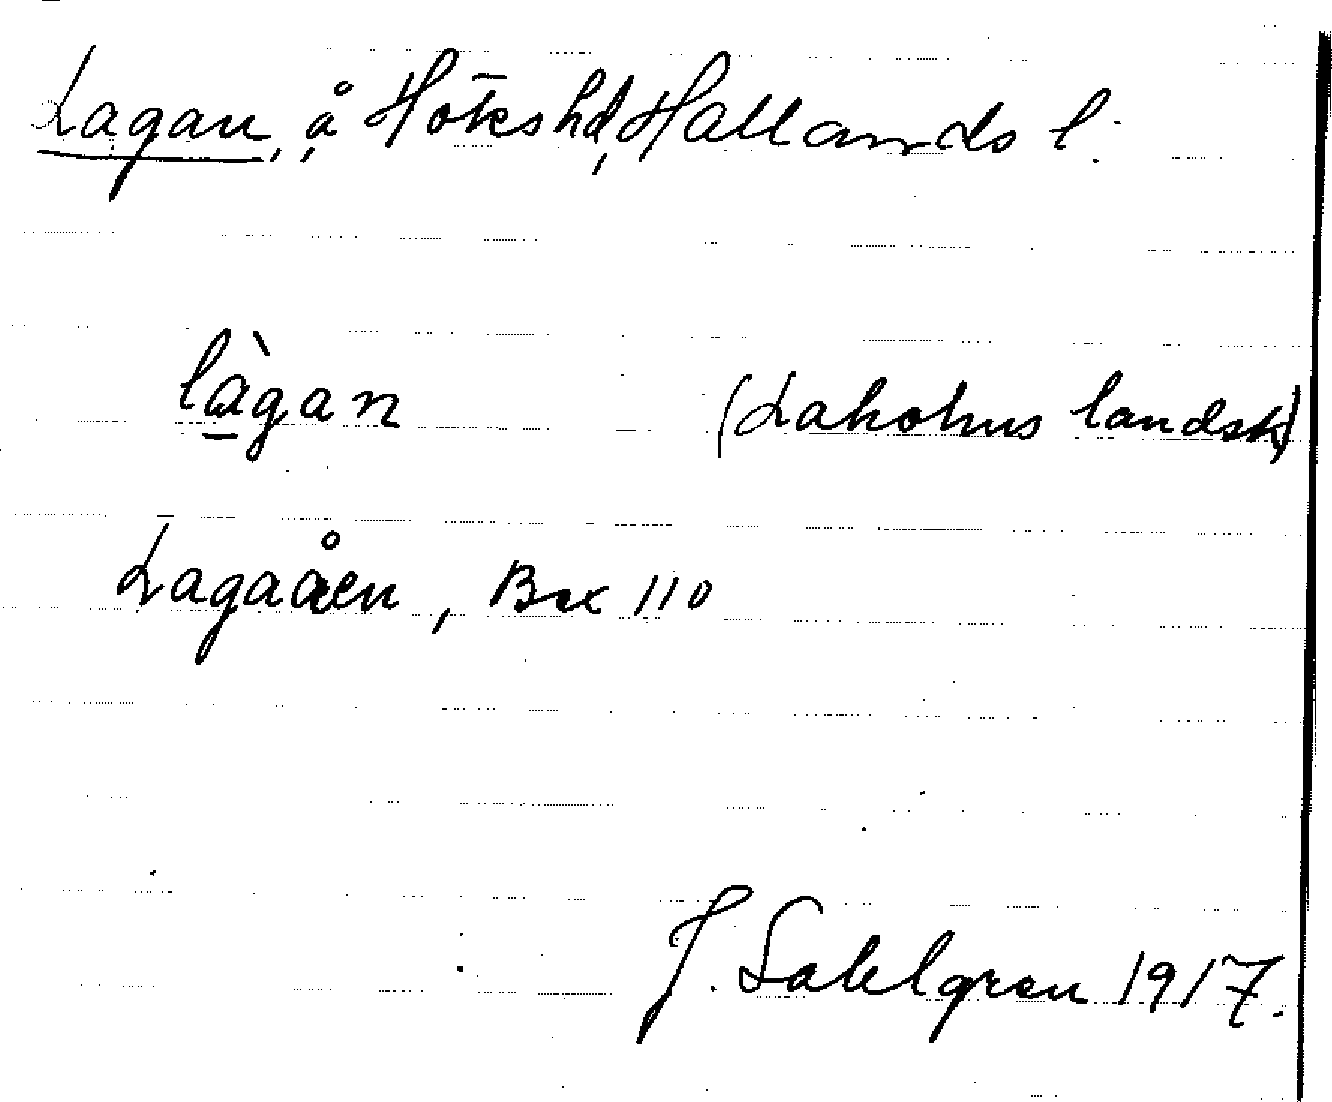 Lagan, å Höks hd, Hallands l.
làgan (Laholms landsk)
Lagaåen, Bex 110
J. Sahlgren 1917.